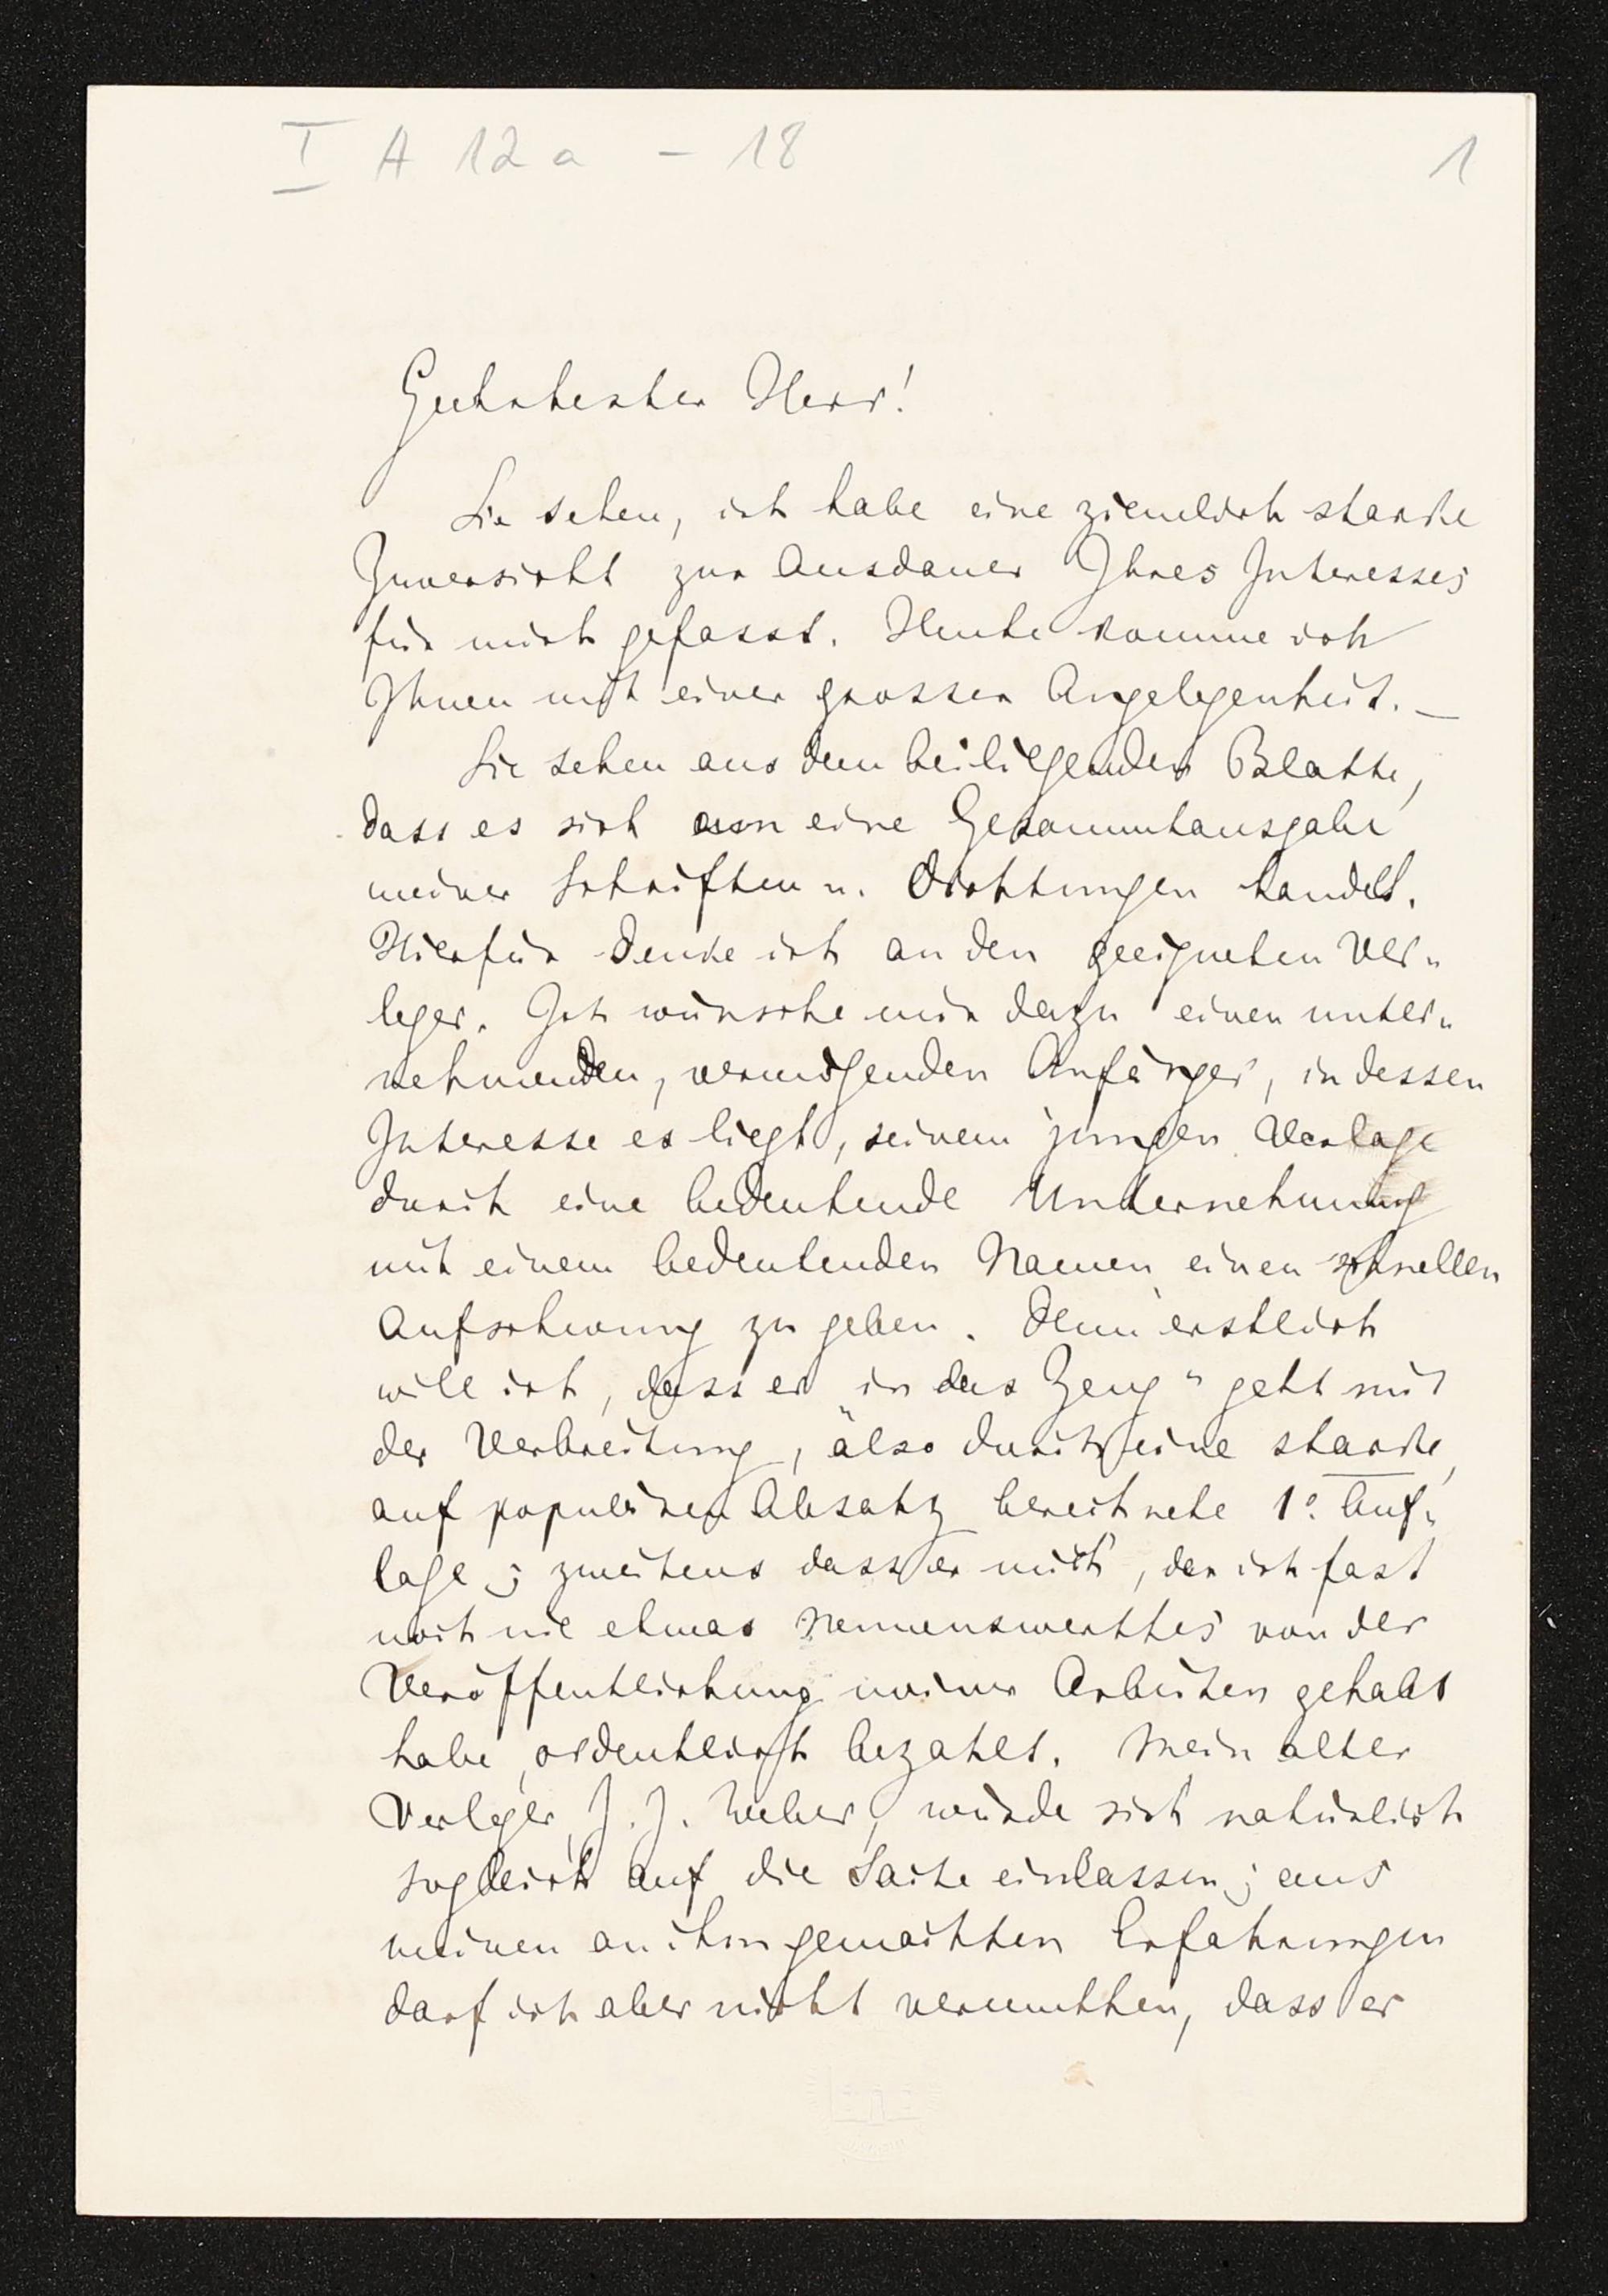 I A 12 a - 18
1
Geehrtester Herr!
Sie sehen, ich habe eine ziemlich starke
Zuversicht zur Ausdauer Ihres Interesses
für mich gefasst. Heute komme ich
Ihnen mit einer grossen Angelegenheit. —
Sie sehen aus dem beiliegenden Blatte,
dass es sich um eine Gesammtausgabe
meiner Schriften u. Dichtungen handelt.
Hierfür denke ich an den geeigneten Ver„
leger. Ich wünsche mir dazu einen unter„
nehmenden, vermögenden Anfänger, in dessen
Interesse es liegt, seinem jungen Verlage
durch eine bedeutende Unternehmung
mit einem bedeutenden Namen einen schnellen
Aufschwung zu geben. Denn erstlich
will ich, dass er „in das Zeug“ geht mit
der Verbreitung, also durch eine starke,
auf populären Absatz berechnete 1e Auf„
lage; zweitens dass er mich, der ich fast
noch nie etwas Nennenswerthes von der
Veröffentlichung meiner Arbeiten gehabt
habe, ordentlich bezahlt. Mein alter
Verleger, J. J. Weber, würde sich natürlich
sogleich auf die Sache einlassen; aus
meinen an ihm gemachten Erfahrungen
darf ich aber nicht vermuthen, dass er